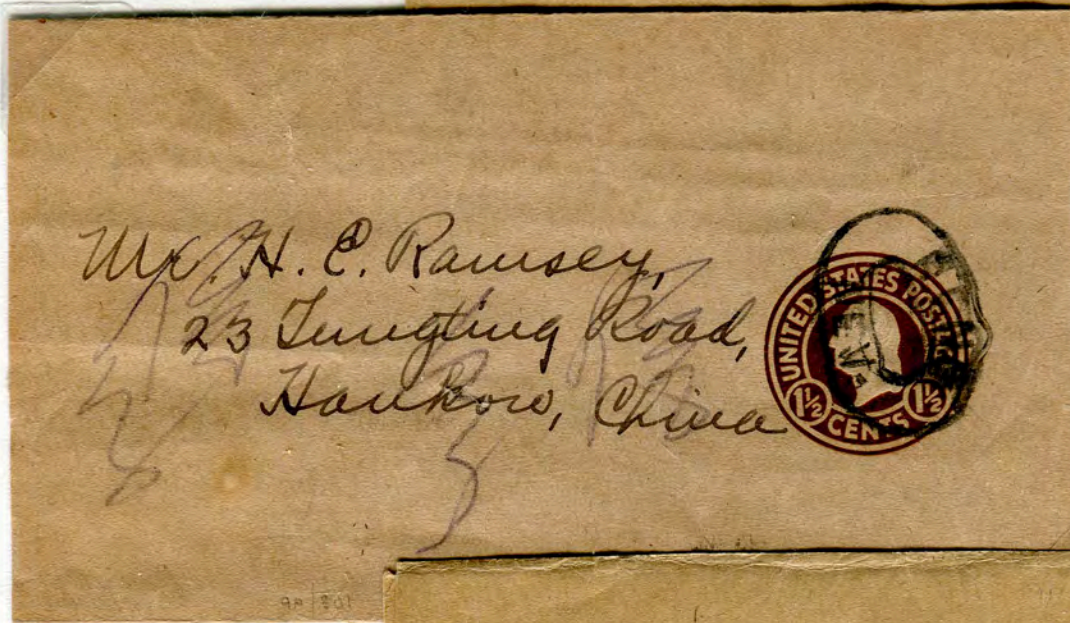 Mr. H. C. Ramsey,
23 Tungting Road,
Hankow, China
UNITED STATES POSTAGE
1½ CENTS 1½